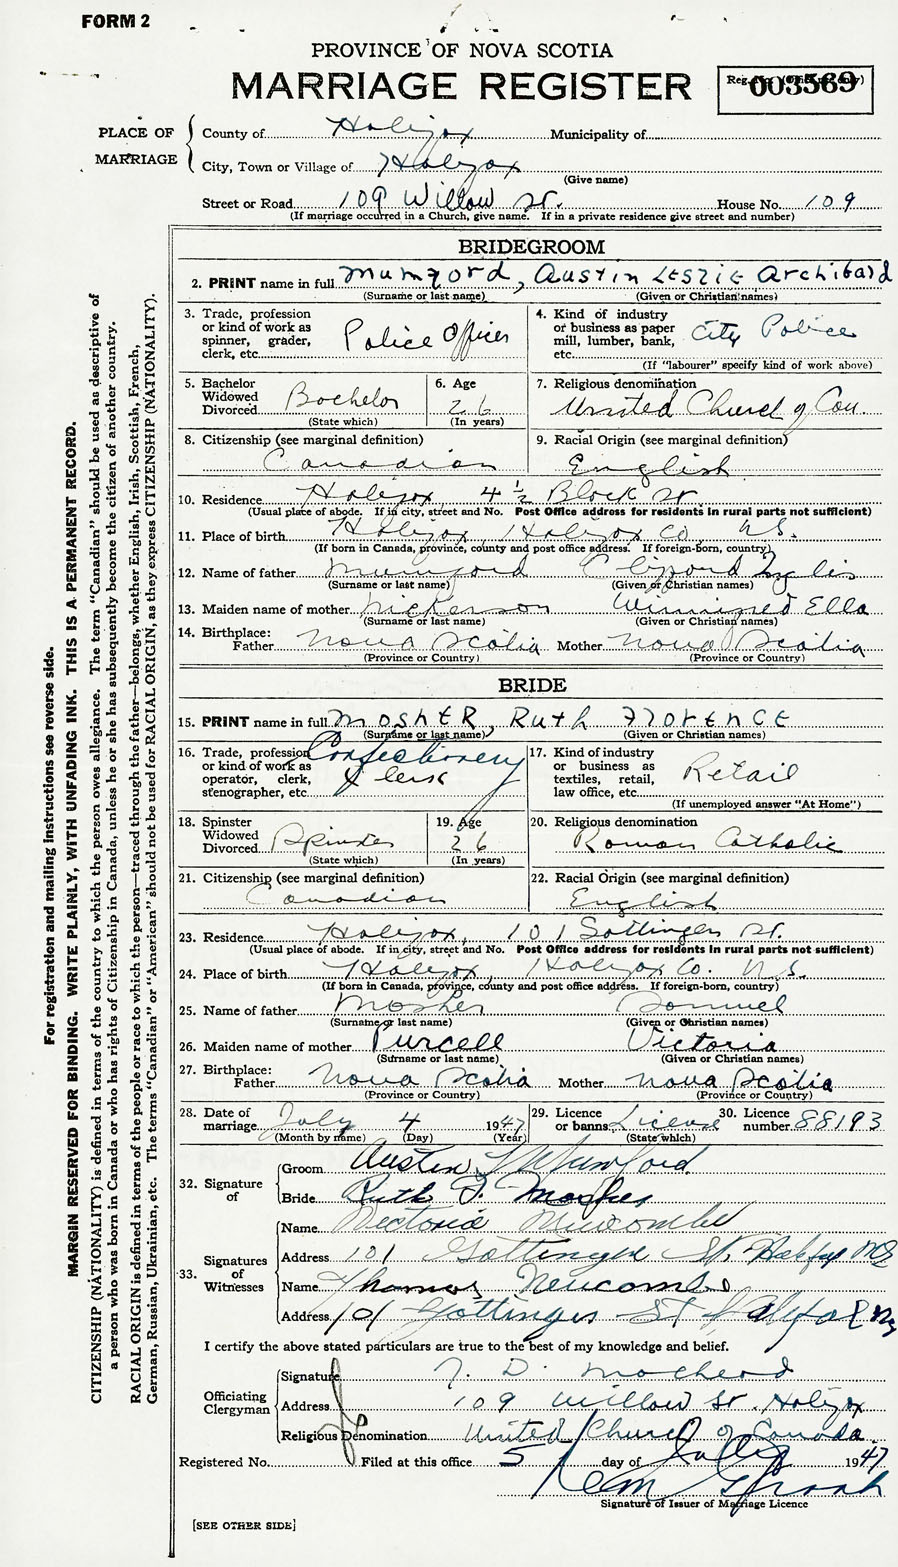 FORM 2
PROVINCE OF NOVA SCOTIA
MARRIAGE REGISTER
Reg. No. (Office use only)
003569
PLACE OF MARRIAGE
County of Halifax Municipality of
City, Town or Village of Halifax
(Give name)
Street or Road 109 Willow St. House No. 109
(If marriage occurred in a Church, give name. If in a private residence give street and number)
BRIDEGROOM
2. PRINT name in full Mumford, Austin Leslie Archibald
(Surname or last name) (Given or Christian names)
3. Trade, profession or kind of work as spinner, grader, clerk, etc. Police Officer
4. Kind of industry or business as paper mill, lumber, bank, etc. City Police
(If "labourer" specify kind of work above)
5. Bachelor Widowed Divorced Bachelor
(State which)
6. Age 26
(In years)
7. Religious denomination United Church of Can.
8. Citizenship (see marginal definition) Canadian
9. Racial Origin (see marginal definition) English
10. Residence Halifax 4 ½ Black St
(Usual place of abode. If in city, street and No. Post Office address for residents in rural parts not sufficient)
11. Place of birth Halifax Halifax Co N.S.
(If born in Canada, province, county and post office address. If foreign-born, country)
12. Name of father Mumford Clifford Inglis
(Surname or last name) (Given or Christian names)
13. Maiden name of mother Nickerson Winnifred Ella
(Surname or last name) (Given or Christian names)
14. Birthplace: Father Nova Scotia Mother Nova Scotia
(Province or Country) (Province or Country)
BRIDE
15. PRINT name in full Mosher, Ruth Florence
(Surname or last name) (Given or Christian names)
16. Trade, profession or kind of work as operator, clerk, stenographer, etc. Confectionery Clerk
17. Kind of industry or business as textiles, retail, law office, etc. Retail
(If unemployed answer "At Home")
18. Spinster Widowed Divorced Spinster
(State which)
19. Age 26
(In years)
20. Religious denomination Roman Catholic
21. Citizenship (see marginal definition) Canadian
22. Racial Origin (see marginal definition) English
23. Residence Halifax, 101 Gottingen St.
(Usual place of abode. If in city, street and No. Post Office address for residents in rural parts not sufficient)
24. Place of birth Halifax, Halifax Co. N.S.
(If born in Canada, province, county and post office address. If foreign-born, country)
25. Name of father Mosher Samuel
(Surname or last name) (Given or Christian names)
26. Maiden name of mother Purcell Victoria
(Surname or last name) (Given or Christian names)
27. Birthplace: Father Nova Scotia Mother Nova Scotia
(Province or Country) (Province or Country)
28. Date of marriage July 4 1947
(Month by name) (Day) (Year)
29. Licence or banns License
(State which)
30. Licence number 88193
32. Signature of
Groom Austin L Mumford
Bride Ruth F. Mosher
33. Signatures of Witnesses
Name Victoria Newcombe
Address 101 Gottingen St. Halifax NS
Name Thomas Newcombe
Address 101 Gottingen St Halifax NS
I certify the above stated particulars are true to the best of my knowledge and belief.
Officiating Clergyman
Signature
Address 109 Willow St. Halifax
Religious Denomination United Church of Canada
Registered No. Filed at this office 5 day of July 1947
Signature of Issuer of Marriage Licence
[SEE OTHER SIDE]
For registration and mailing instructions see reverse side.
MARGIN RESERVED FOR BINDING. WRITE PLAINLY, WITH UNFADING INK. THIS IS A PERMANENT RECORD.
CITIZENSHIP (NATIONALITY) is defined in terms of the country to which the person owes allegiance. The term "Canadian" should be used as descriptive of
a person who was born in Canada or who has rights of Citizenship in Canada, unless he or she has subsequently become the citizen of another country.
RACIAL ORIGIN is defined in terms of the people or race to which the person—traced through the father—belongs, whether English, Irish, Scottish, French,
German, Russian, Ukrainian, etc. The terms "Canadian" or "American" should not be used for RACIAL ORIGIN, as they express CITIZENSHIP (NATIONALITY).